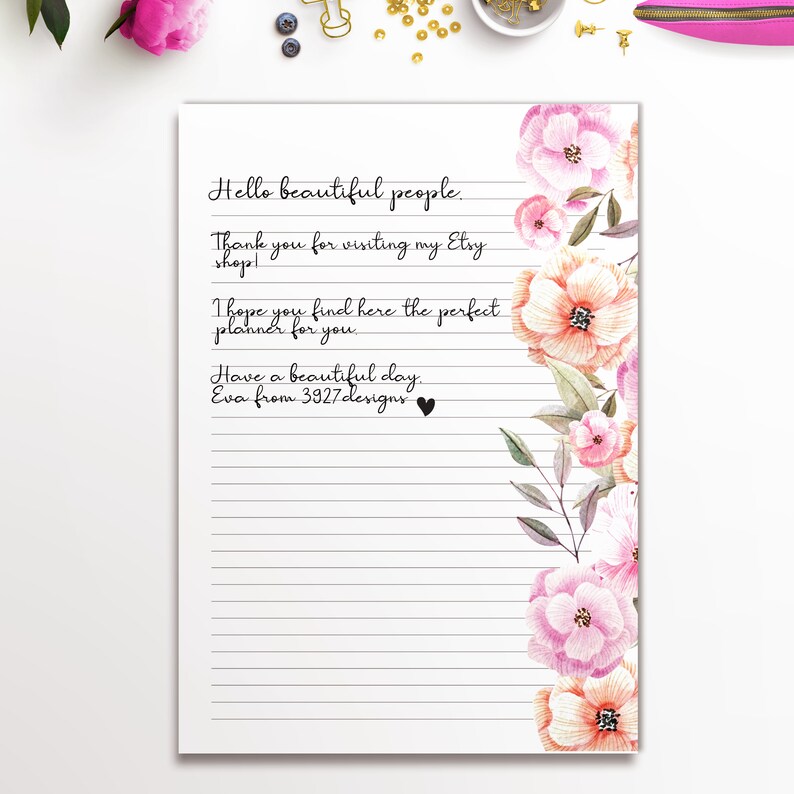 Hello beautiful people.
Thank you for visiting my Etsy
shop!
I hope you find here the perfect
planner for you.
Have a beautiful day.
Eva from 3927designs ♥